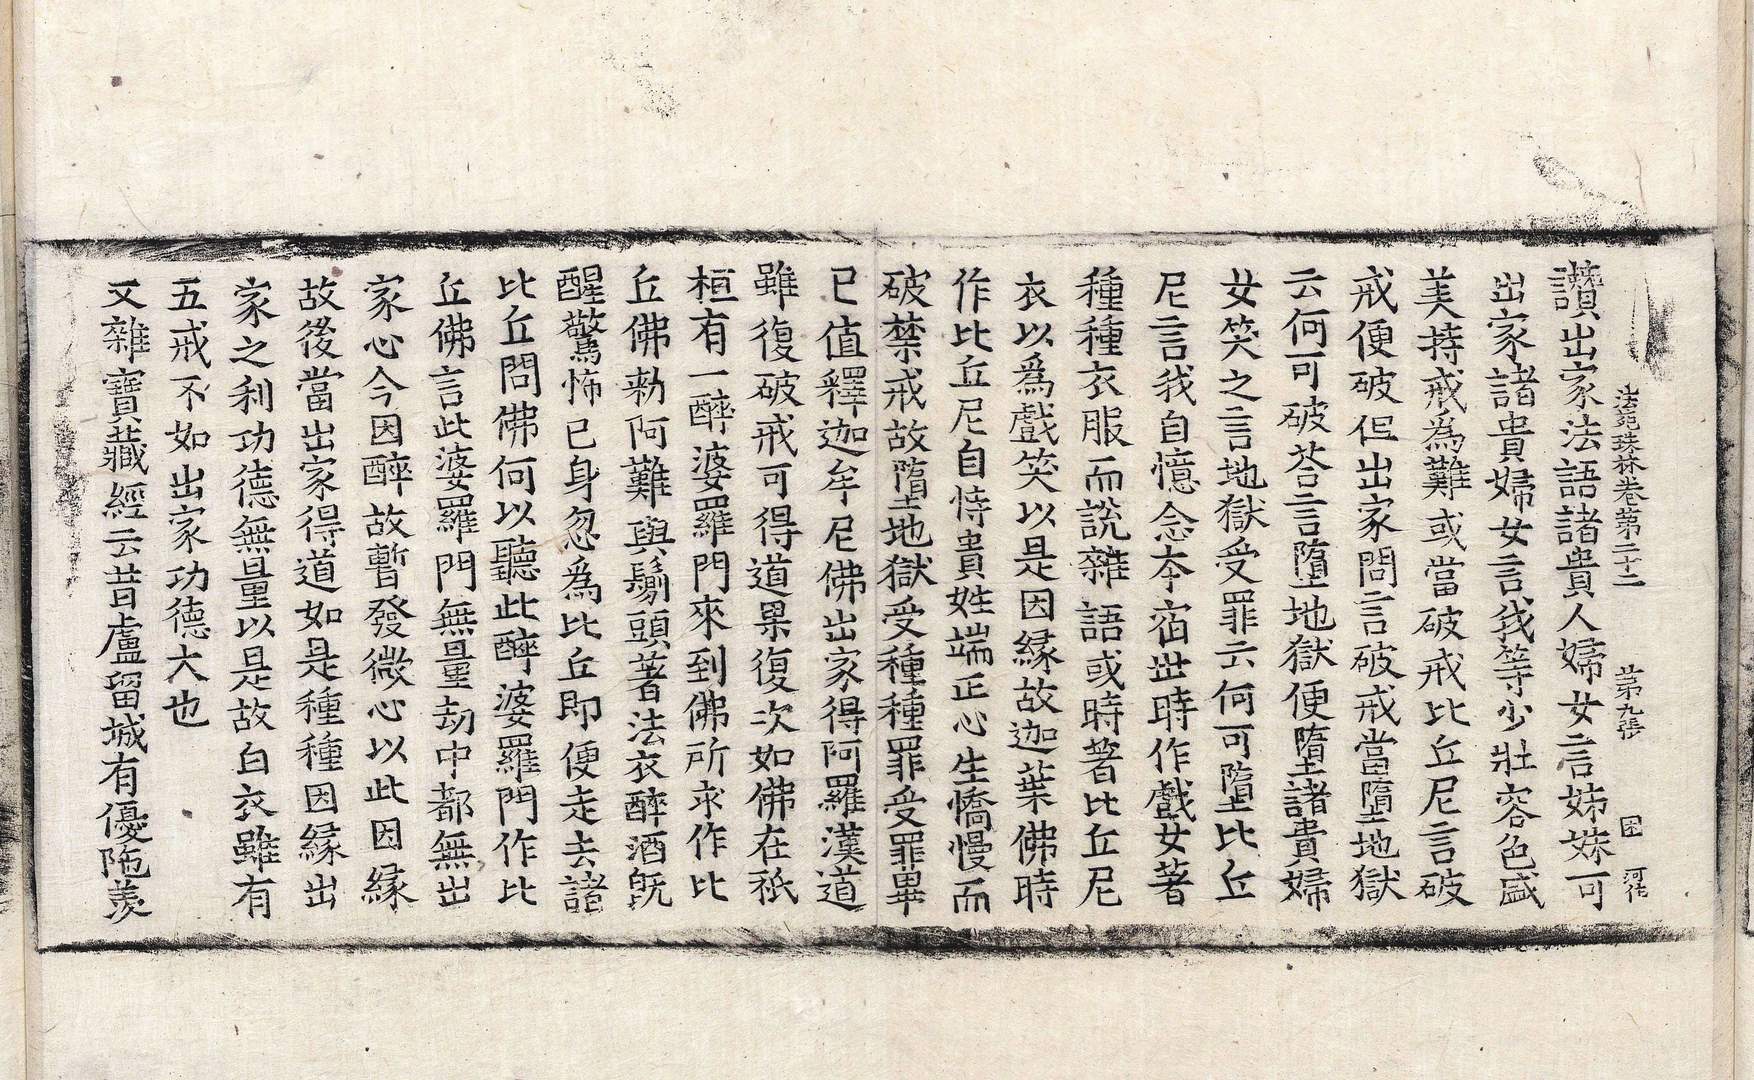 法苑珠林卷第二十二 第九張 困 河佑
讃出家法語諸貴人婦女言姊妹可
出家諸貴婦女言我等少壯容色盛
美持戒為難或當破戒比丘尼言破
戒便破但出家問言破戒當墮地獄
云何可破荅言墮地獄便墮諸貴婦
女笑之言地獄受罪云何可墮比丘
尼言我自憶念本宿世時作戲女著
種種衣服而說雜語或時著比丘尼
衣以為戲笑以是因緣故迦葉佛時
作比丘尼自恃貴姓端正心生憍慢而
破禁戒故墮地獄受種種罪受罪畢
已值釋迦牟尼佛出家得阿羅漢道
雖復破戒可得道果復次如佛在祇
桓有一醉婆羅門來到佛所求作比
丘佛勑阿難與鬀頭著法衣醉酒旣
醒驚怖已身忽為比丘即便走去諸
比丘問佛何以聽此醉婆羅門作比
丘佛言此婆羅門無量劫中都無出
家心今因醉故暫發微心以此因緣
故後當出家得道如是種種因緣出
家之利功德無量以是故白衣雖有
五戒不如出家功德大也
又雜寶藏經云昔盧留城有優陁羨